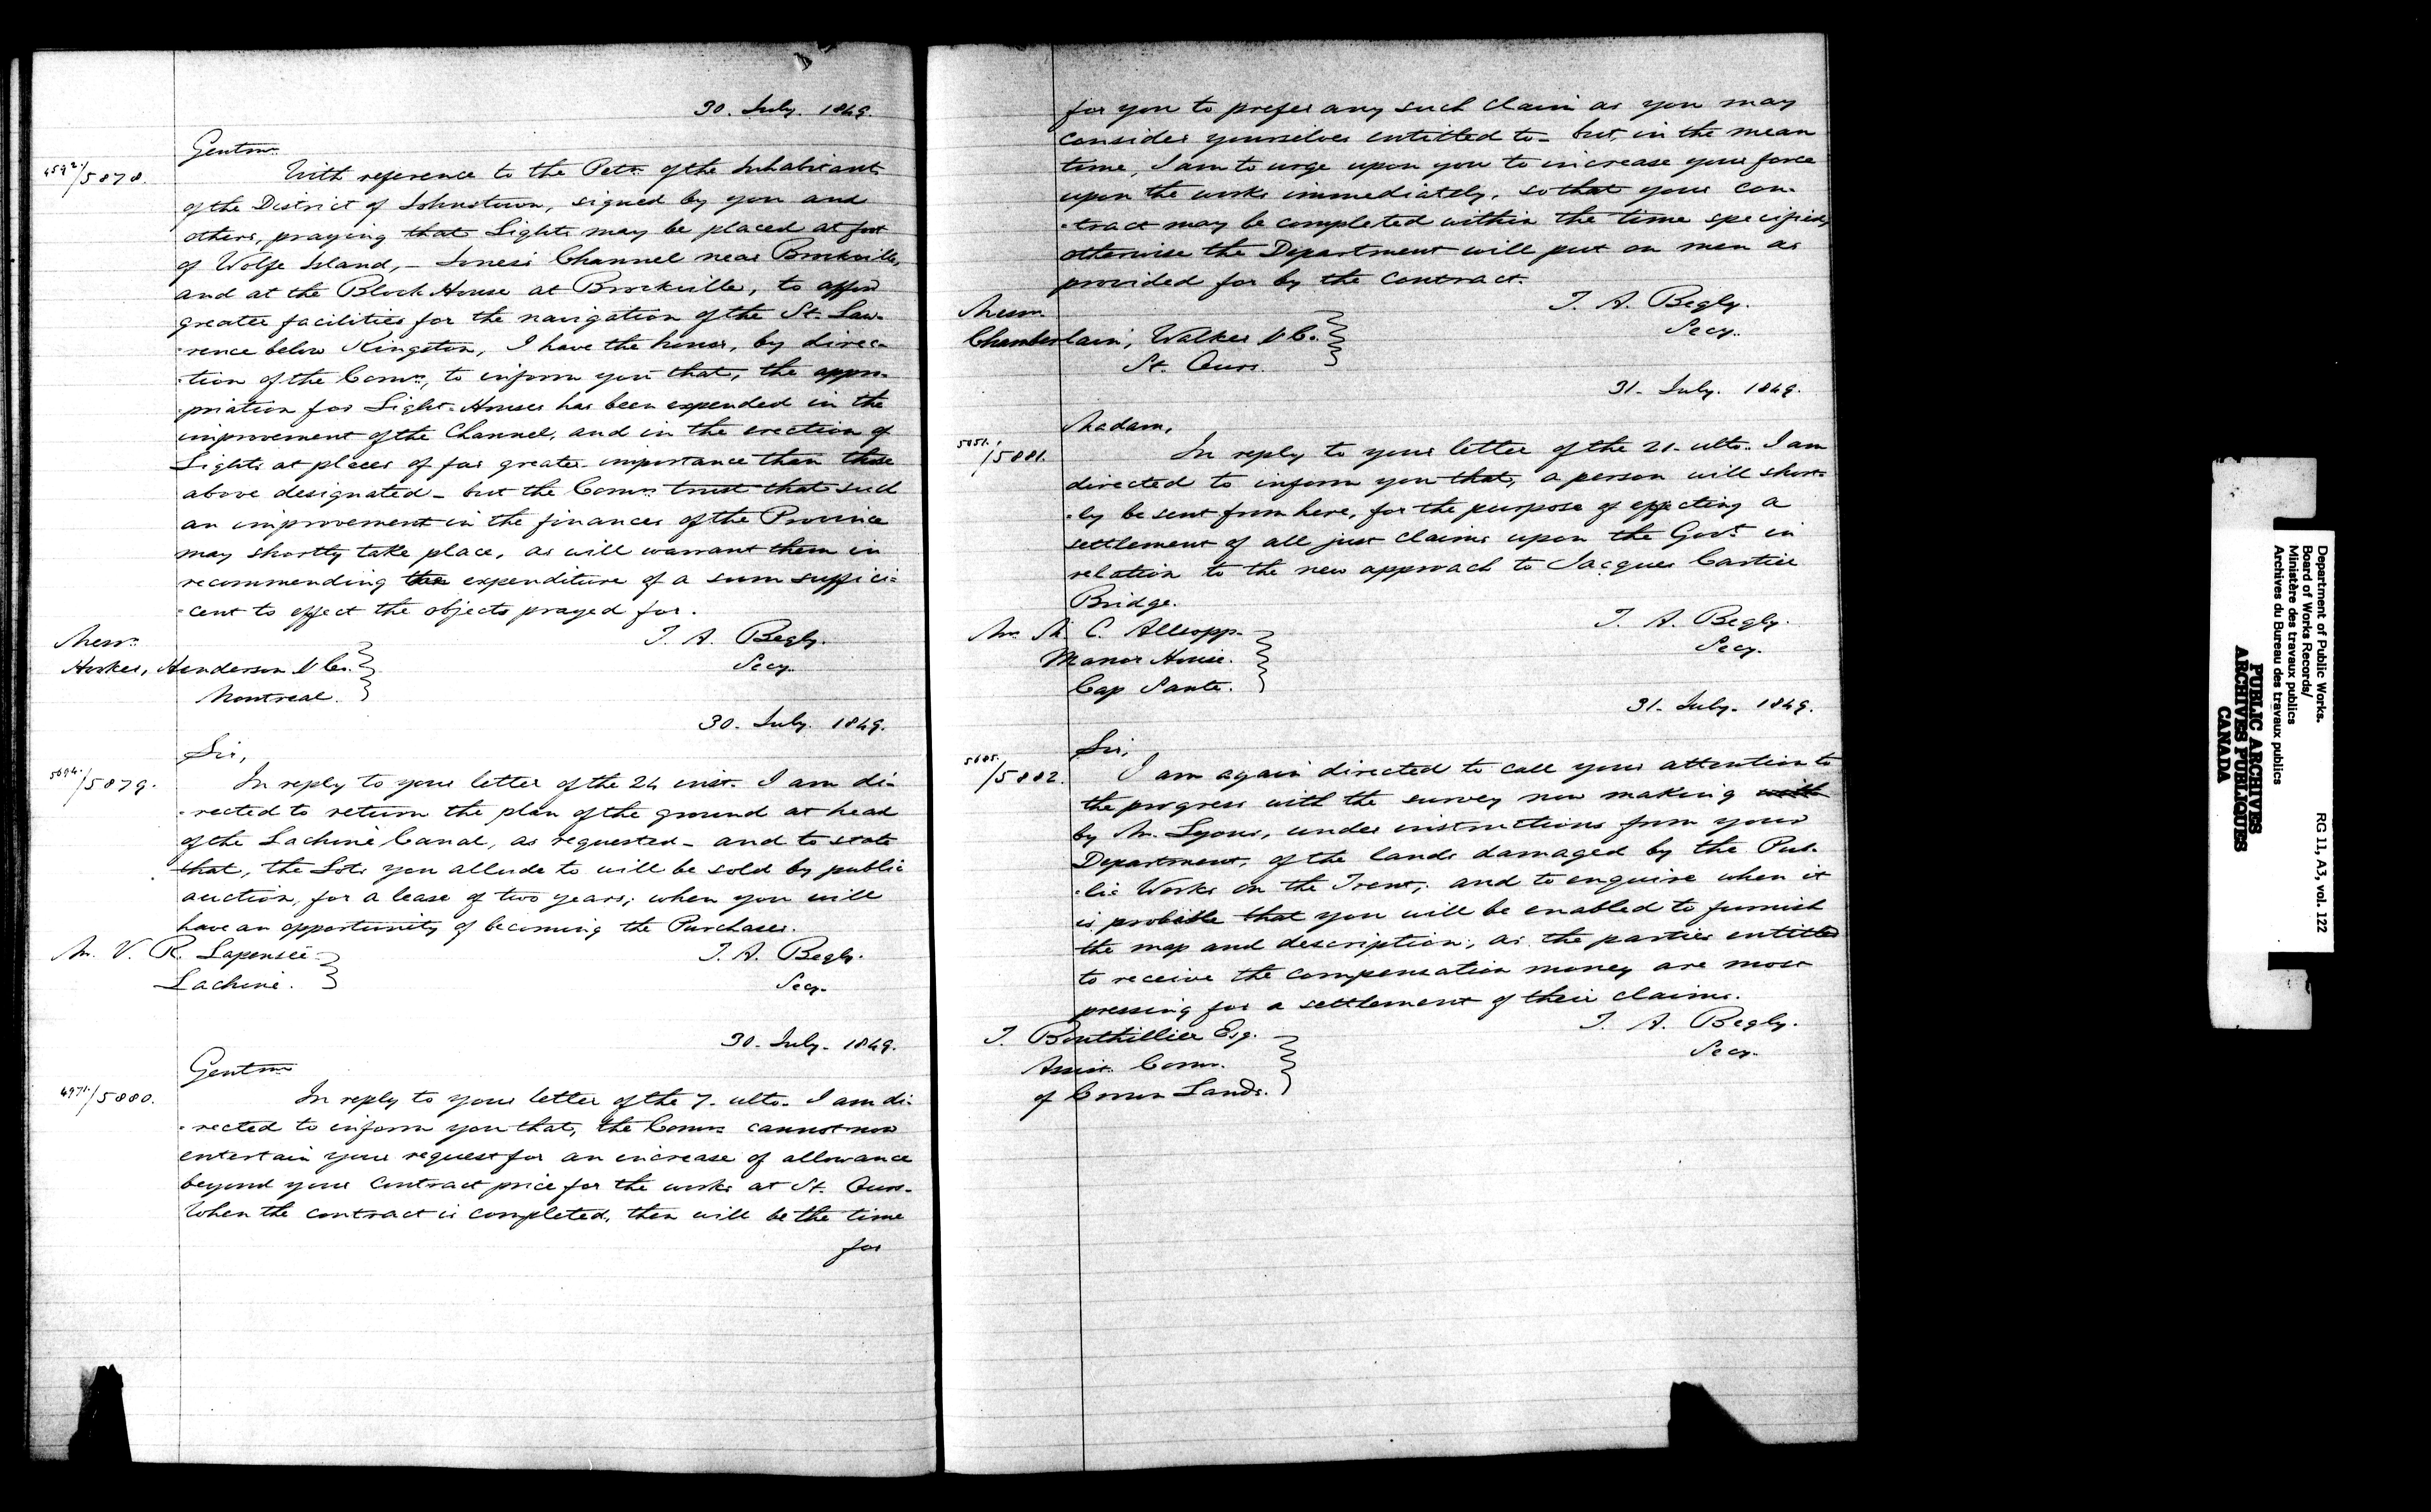 30. July. 1849.
Gentmn
4592./5878.
With reference to the Petn. of the Inhabitants
of the District of Johnstown, signed by you and
others, praying that Lights may be placed at foot
of Wolfe Island, - Jones's Channel near Brockville,
and at the Block House at Brockville, to afford
greater facilities for the navigation of the St. Law-
-rence below Kingston, I have the honor, by direc-
-tion of the Comrs, to inform you that, the appro-
-priation for Light-Houses has been expended in the
improvement of the Channel, and in the erection of
Lights at places of far greater importance than those
above designated - but the Comrs. trust that such
an improvement in the finances of the Province
may shortly take place, as will warrant them in
recommending the expenditure of a sum suffici-
-cent to effect the objects prayed for.
Messrs.
Hooker, Henderson & Co.
Montreal.
T. A. Begly.
Secy.
30. July. 1849.
Sir,
/5879.
In reply to your letter of the 24 inst. I am di-
-rected to return the plan of the ground at head
of the Lachine Canal, as requested - and to state
that, the Lots you allude to will be sold by public
auction, for a lease of two years; when you will
have an opportunity of becoming the Purchaser.
Mr. V. R. Lapensée
Lachine.
T. A. Begly.
Secy.
30. July. 1849.
Gentmn
4971./5880.
In reply to your letter of the 7. ulto. I am di-
-rected to inform you that, the Comrs. cannot now
entertain your request for an increase of allowance
beyond your Contract price for the works at St. Ours.
When the contract is completed, then will be the time
for
for you to prefer any such claim as you may
consider yourselves entitled to - but in the mean
time, I am to urge upon you to increase your force
upon the works immediately, so that your con-
-tract may be completed within the time specified,
otherwise the Department will put on men as
provided for by the Contract.
Messrs.
Chamberlain, Walker & Co.
St. Ours.
T. A. Begly.
Secy.
31. July. 1849.
Madam,
5051./5881.
In reply to your letter of the 21. ulto. I am
directed to inform you that, a person will short-
-ly be sent from here, for the purpose of effecting a
settlement of all just claims upon the Govt. in
relation to the new approach to Jacques Cartier
Bridge.
C. Allsopp.
Manor House.
Cap Santé.
T. A. Begly.
Secy.
31. July. 1849.
Sir,
/5882.
I am again directed to call your attention to
the progress with the survey now making with
by Mr. Lyons, under instructions from your
Department, of the lands damaged by the Pub-
-lic Works on the Trent; and to enquire when it
is probable that you will be enabled to furnish
the map and description, as the parties entitled
to receive the compensation money are most
pressing for a settlement of their claims.
T. Bouthillier Esq.
Assist. Comr.
of Crown Lands.
T. A. Begly.
Secy.
Department of Public Works.
Board of Works Records/
Ministère des travaux publics
Archives du Bureau des travaux publics
RG 11, A3, vol. 122
PUBLIC ARCHIVES
ARCHIVES PUBLIQUES
CANADA